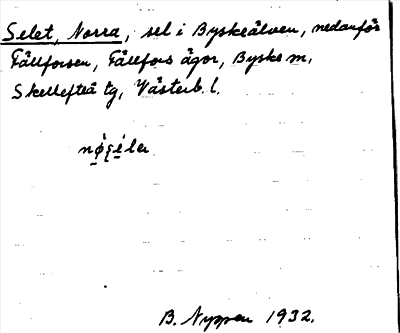 Selet, Norra, sel i Byskeälven, nedanför
Fällforsen, Fällfors ägor, Byske sn,
Skellefteå tg, Västerb. l.
B. Nyppen 1932.